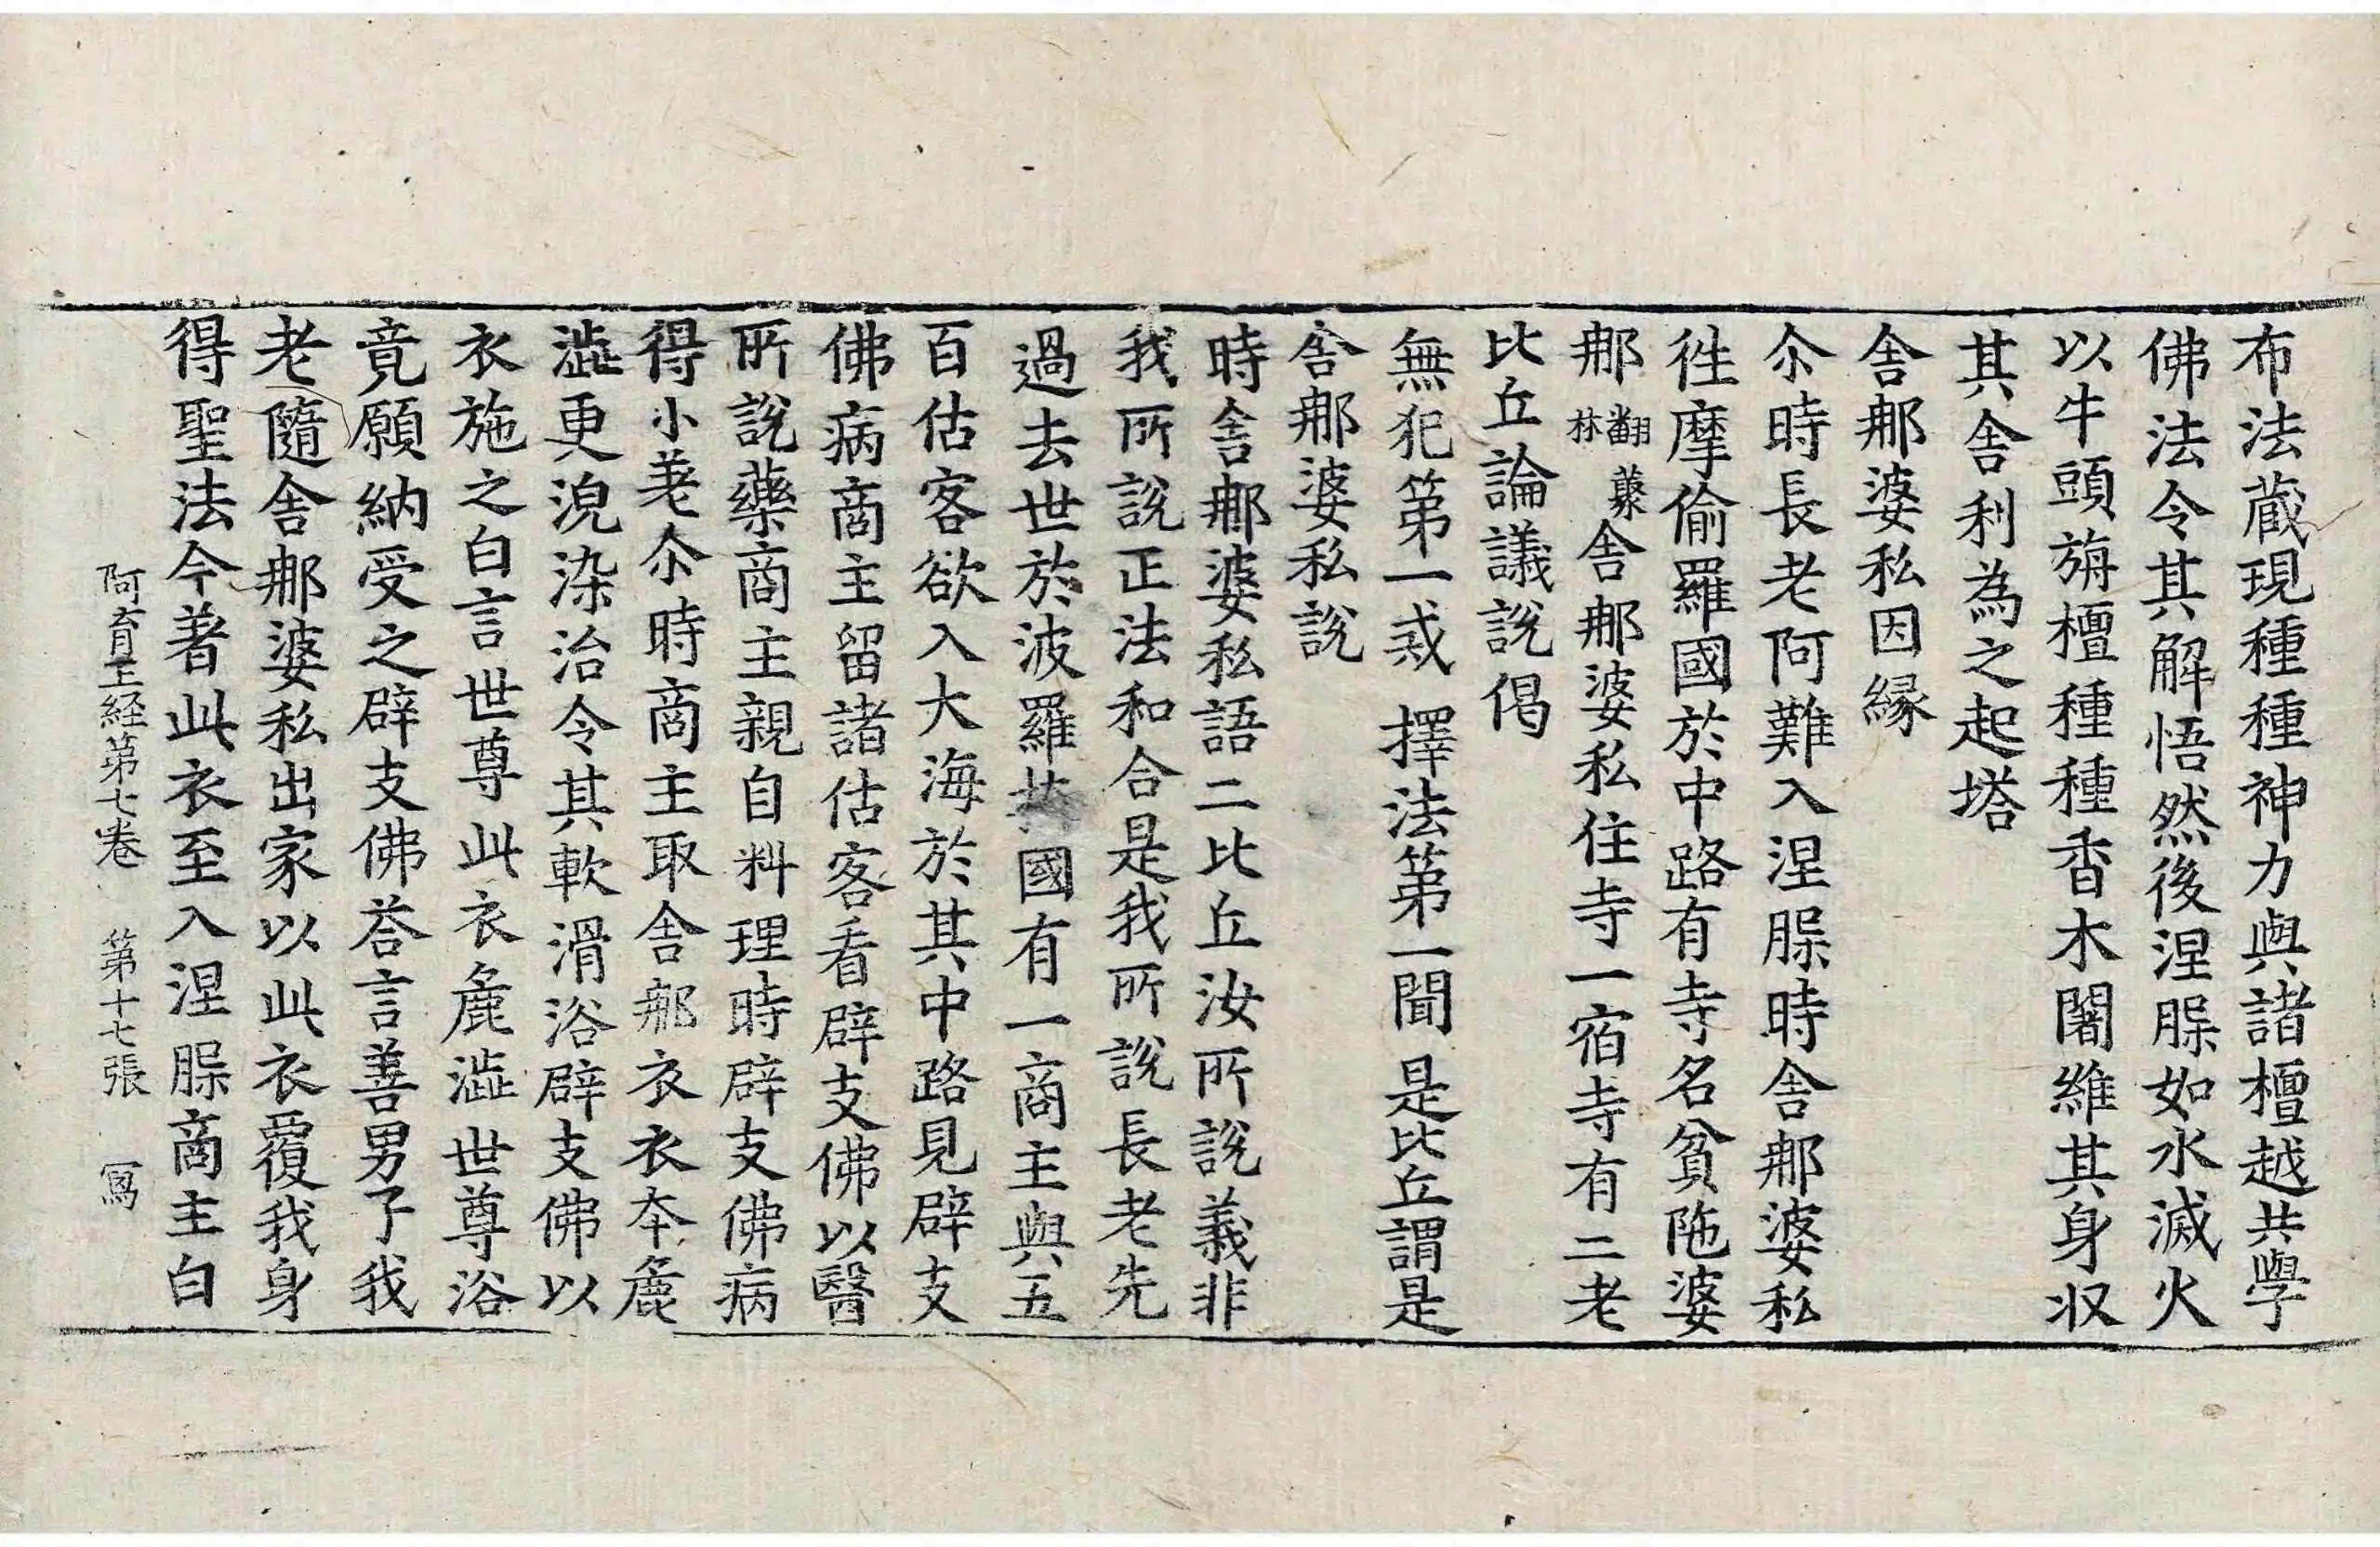 布法蔵現種種神力與諸檀越共學
佛法令其解悟然後涅槃如水滅火
以牛頭旃檀種種香木闍維其身収
其舎利為之起塔
舎那婆私因縁
尒時長老阿難入涅槃時舎那婆私
徃摩偷羅國於中路有寺名貧陁婆
那翻藂林舎那婆私住寺一宿寺有二老
比丘論議說偈
無犯第一戒 擇法第一聞 是比丘謂是
舎那婆私說
時舎那婆私語二比丘汝所說義非
我所說正法和合是我所說長老先
過去世於波羅國有一商主與五
百估客欲入大海於其中路見辟支
佛病商主留諸估客看辟支佛以醫
所說藥商主親自料理時辟支佛病
得小差尒時商主取舎那衣衣本麁
澁更浣染治令其軟滑浴辟支佛以
衣施之白言世尊此衣麁澁世尊浴
竟願納受之辟支佛荅言善男子我
老隨舎那婆私出家以此衣覆我身
得聖法今著此衣至入涅槃商主白
阿育王経第七卷 第十七張 寫